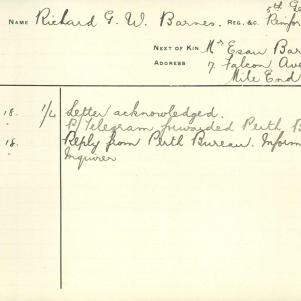 5th Ge
NAME Richard G. W. Barnes. REG. &C. Reinfor
NEXT OF KIN Mr Esau Bar
ADDRESS 7 Falcon Ave
Mile End
18. 1/L Letter acknowledged.
P/Telegram forwarded Perth B
18. Reply from Perth Bureau. Inform
Inquirer